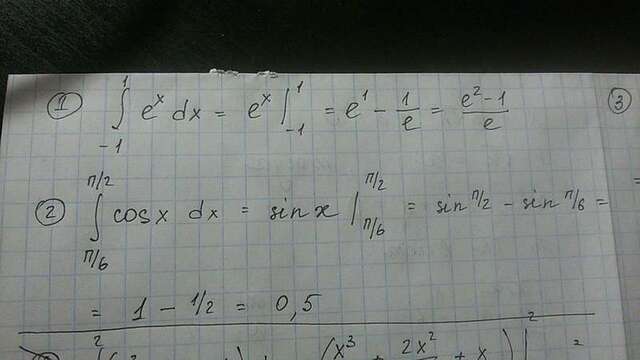 1 ∫₋₁¹ eˣ dx = eˣ |₋₁¹ = e¹ - 1/e = (e² - 1)/e
3
2 ∫_{π/6}^{π/2} cosx dx = sinx |_{π/6}^{π/2} = sin π/2 - sin π/6 =
= 1 - 1/2 = 0,5